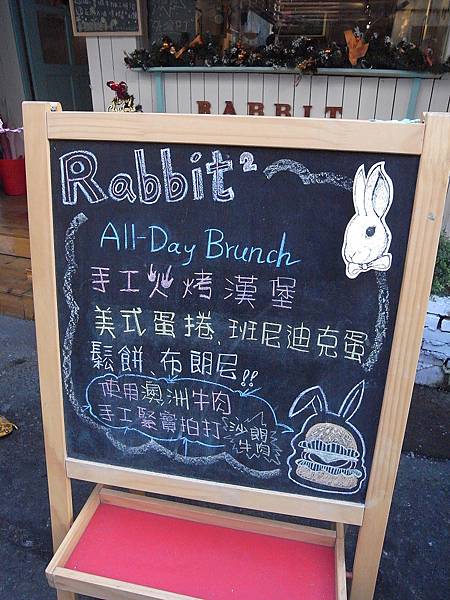 RABBIT
Rabbit²
All-Day Brunch
手工炊烤漢堡
美式蛋捲、班尼迪克蛋
鬆餅、布朗尼!!
使用澳洲牛肉
手工緊實拍打
沙朗
牛肉